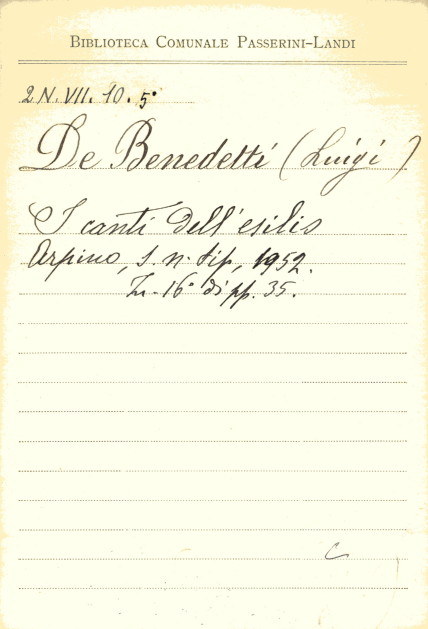 BIBLIOTECA COMUNALE PASSERINI-LANDI
2 N. VII. 10. 5°
De Benedetti (Luigi)
I canti dell'esilio
Arpino, s. n. tip, 1952.
In-16° di pp. 35.
C